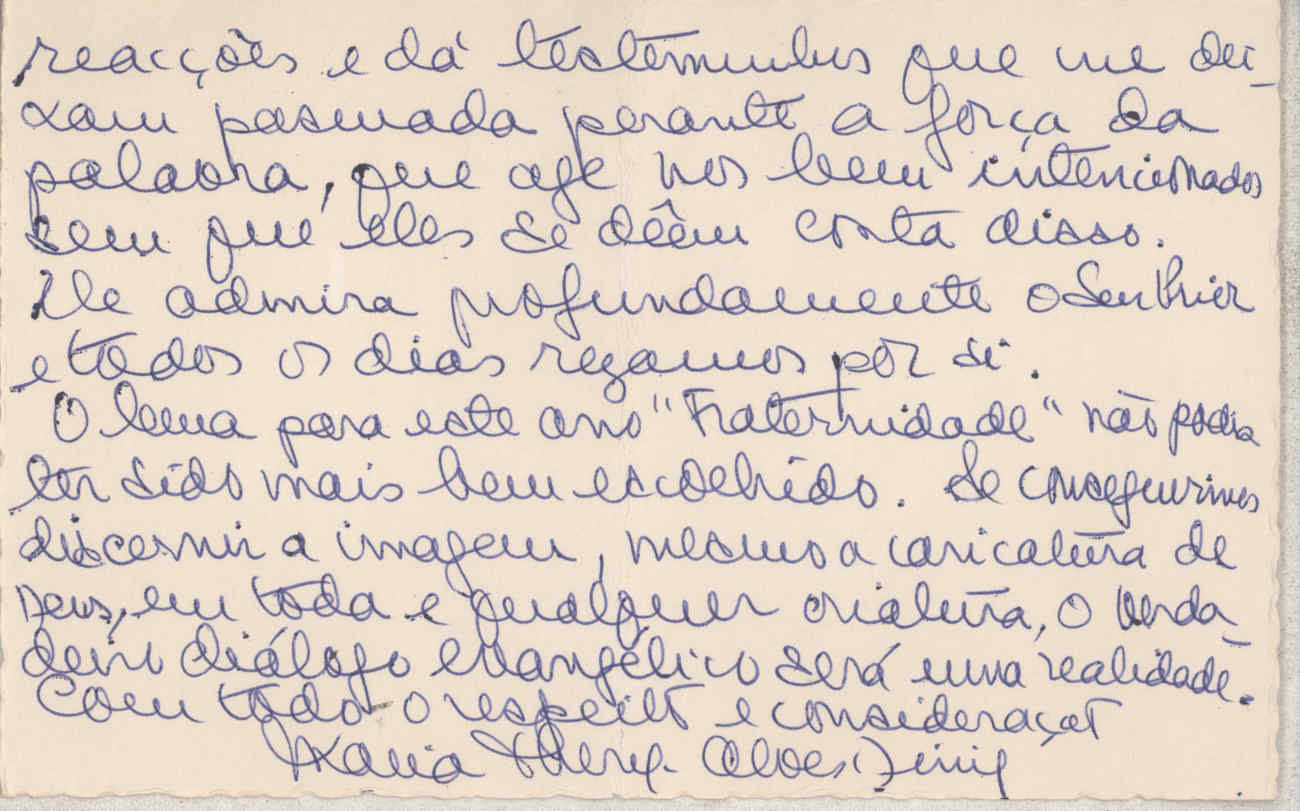 reacções e dá testemunhos que me dei-
xam pasmada perante a força da
palavra, que age nos bem intencionados
sem que eles se dêem conta disso.
Ele admira profundamente o Senhor
e todos os dias rezamos por si.
O lema para este ano "Fraternidade" não podia
ter sido mais bem escolhido. Se conseguirmos
discernir a imagem, mesmo a caricatura de
Deus, em toda e qualquer criatura, o verda-
deiro diálogo evangélico será uma realidade.
Com todo o respeito e consideração
Maria Alves